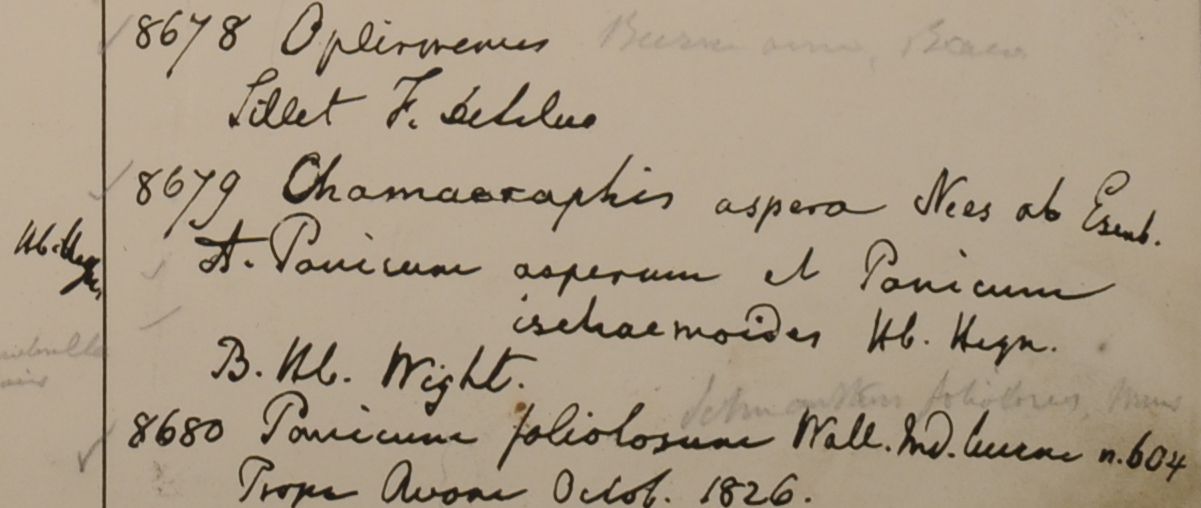 8678 Oplismenus
Sillet F. De Silva
8679 Chamaeraphis aspera Nees ab Esenb.
Hb. Heyn.
A. Panicum asperum et Panicum
ischaemoides Hb. Heyn.
B. Hb. Wight.
8680 Panicum foliolosum Wall. Ind. n. 604
Prope Octob. 1826.